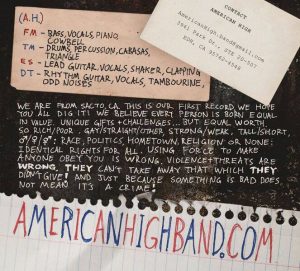 (A.H.)
FM - BASS, VOCALS, PIANO,
COWBELL
TM - DRUMS, PERCUSSION, CABASAS,
TRIANGLE
ES - LEAD GUITAR, VOCALS, SHAKER, CLAPPING
DT - RHYTHM GUITAR, VOCALS, TAMBOURINE,
ODD NOISES
CONTACT
AMERICAN HIGH
AmericanHigh.band@gmail.com
3941 Park Dr., STE 20-507
EDH, CA 95762-4549
WE ARE FROM SACTO, CA. THIS IS OUR FIRST RECORD WE HOPE
YOU ALL DIG IT. WE BELIEVE EVERY PERSON IS BORN EQUAL
IN VALUE. UNIQUE GIFTS + CHALLENGES... BUT EQUAL WORTH
SO RICH/POOR, GAY/STRAIGHT/OTHER, STRONG/WEAK, TALL/SHORT,
♂/♀/⚥: RACE, POLITICS, HOMETOWN, RELIGION OR NONE:
IDENTICAL RIGHTS FOR ALL. USING FORCE TO MAKE
ANYONE OBEY YOU IS WRONG. VIOLENCE + THREATS ARE
WRONG. THEY CAN'T TAKE AWAY THAT WHICH THEY
DIDN'T GIVE! AND JUST BECAUSE SOMETHING IS BAD DOES
NOT MEAN IT'S A CRIME!
AMERICANHIGHBAND.COM